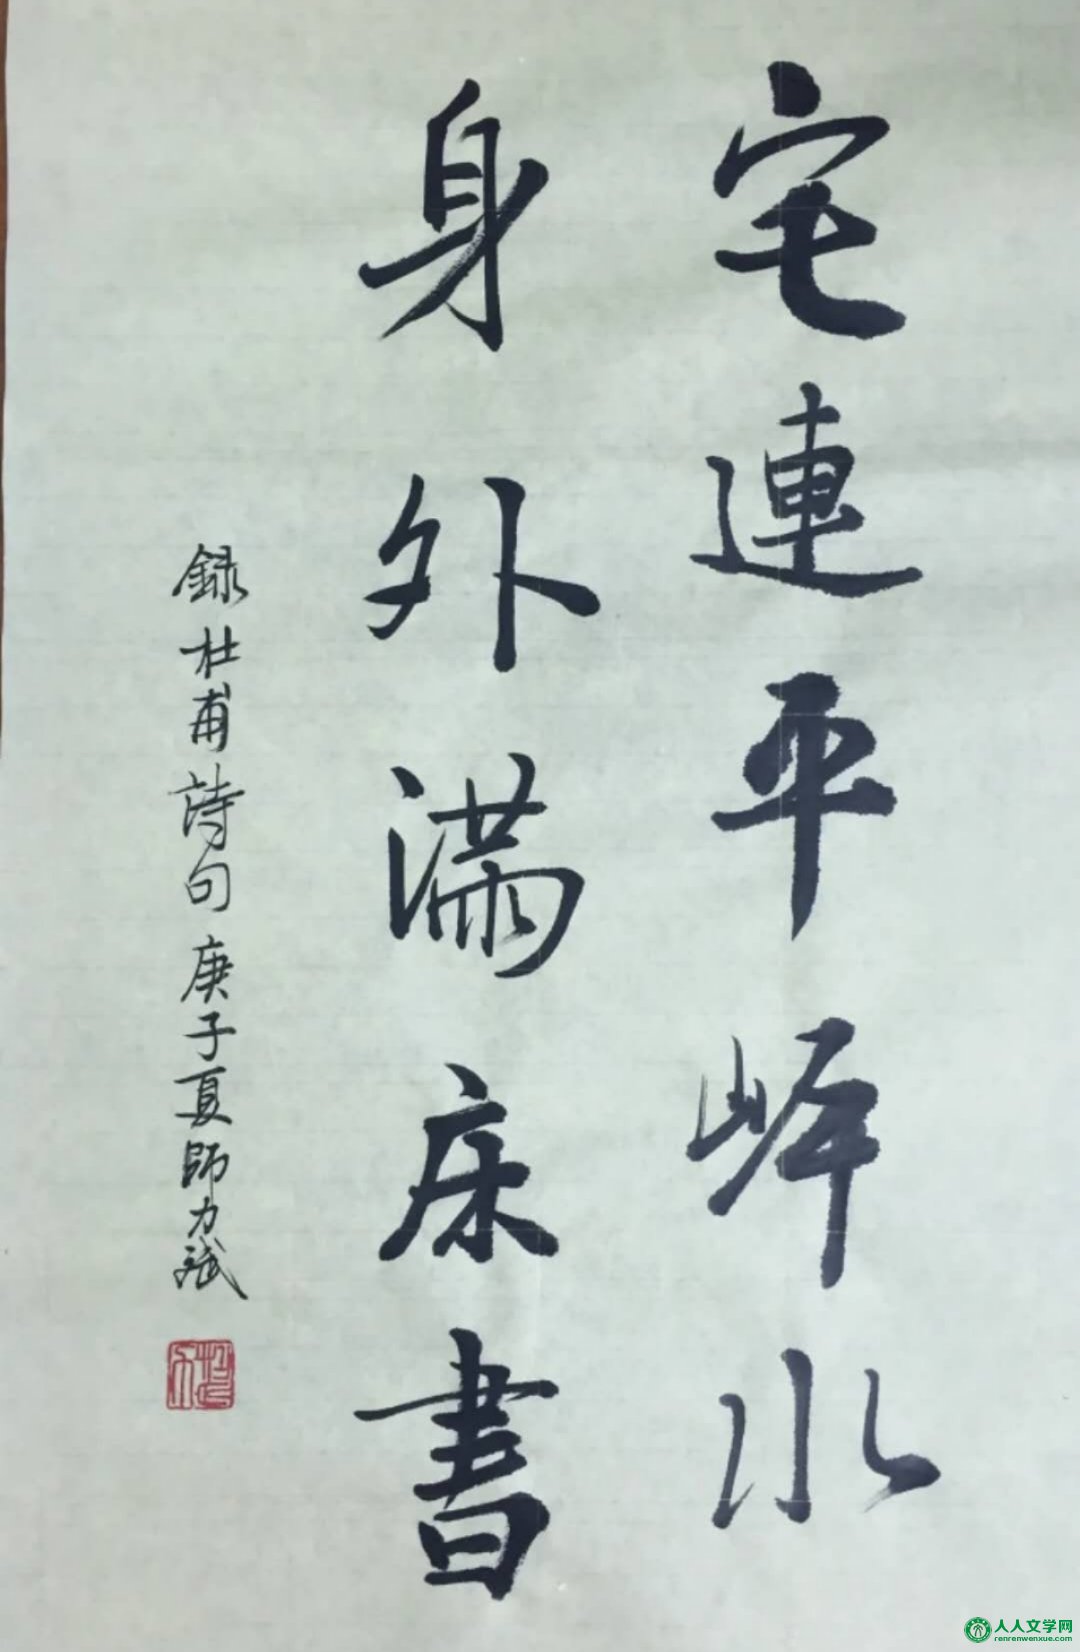 宅連平岸水
身外满床書
録杜甫詩句庚子夏師力斌
人人文学网
renrenwenxue.com